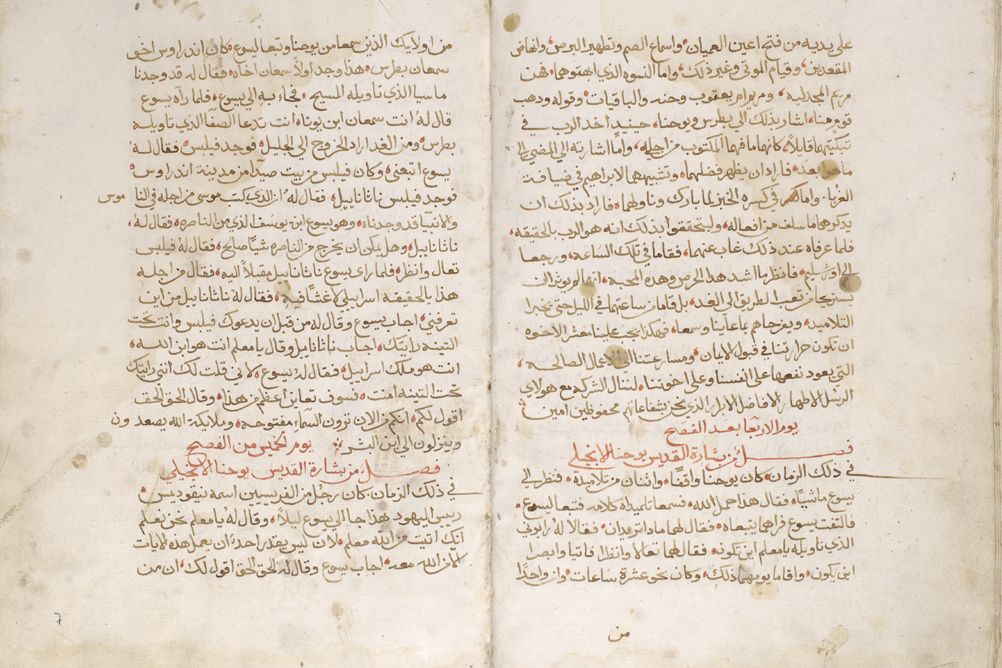 على يديه من فتح اعين العميان واسماع الصم وتطهير البرص وانهاض
المقعدين وقيام الموتى وغير ذلك واما النسوه الذي ابهتوهما فهن
مريم المجدليه ومريم ام يعقوب وحنه والباقيات وقوله وذهب
قوم منا اشار بذلك الي بطرس ويوحنا حينيد اخد الرب في
تبكيتهما قايلا كانهما ما فهما المكتوب من اجله واما اشارته الي المضي الي
ما هو بعد فاراد ان يظهر فضلهما وتشبههما لابراهيم في ضيافة
الغربا واما كسره الخبز لما بارك وناولهما فاراد بذلك ان
يدكرهما ما سلف من افعاله وليتحققوا بذلك انه هو الرب بالحقيقه
فلما عرفاه عند ذلك غاب عنهما فقاما في تلك الساعه ورجعا
الي اورشليم فانظر ما اشد هدا الحرص وهده المحبه انهما لم يريدان
يستريحا من تعب الطريق الي الغد بل قاما من ساعتهما في الليل حتي يخبرا
التلاميد ويفرحاهم بما عاينا وسمعا فهكذا يجب علينا معشر الاخوه
ان تكون حرارتنا في قبول الايمان ومسارعتنا الي الاعمال الصالحه
التي يعود نفعها علي انفسنا وعلي اخوتنا لننال الشركه مع هولاي
الرسل الاطهار الافاضل الابرار الذي نحن بشفاعاتهم محفوظين امين
يوم الاربعا بعد الفصح
فصل من بشارة القديس يوحنا الانجيلي
في ذلك الزمان كان يوحنا واقفا واثنان من تلاميذه فنظر الي
يسوع ماشيا فقال هذا حمل الله فسمعا تلميداه كلامه فتبعا ليسوع
فالتفت يسوع فراهما يتبعاه فقال لهما ماذا تريدان فقالا له رابوني
الذي تاويله يا معلم اين تكون فقال لهما تعالا وانظرا فاتيا وابصرا
اين يكون واقاما يومهما ذلك وكان نحو عشرة ساعات وان واحدا
من
من اولايك الذين سمعا من يوحنا وتبعا ليسوع كان اندراوس اخو
سمعان بطرس هذا وجد اولا سمعان اخاه فقال له قد وجدنا
ماسيا الذي تاويله المسيح فجاء به الي يسوع فلما رآه يسوع
قال له انت سمعان ابن يونا انت تدعا الصفا الذي تاويله
بطرس ومن الغد اراد الخروج الي الجليل فوجد فيلبس فقال له
يسوع اتبعني وكان فيلبس من بيت صيدا من مدينة اندراوس
فوجد فيلبس ناثاناييل فقال له ان الذي كتب موسي من اجله في النا موس
والانبيا قد وجدناه وهو يسوع ابن يوسف الذي من الناصره فقال له
ناثانابيل وهل يمكن ان يخرج من الناصره شيا صالح فقال له فيلبس
تعال وانظر فلما راي يسوع ناثانابيل مقبلا اليه فقال من اجله
هذا بالحقيقه اسراييلي لا غش فيه فقال له ناثانابيل من اين
تعرفني اجاب يسوع وقال له من قبل ان يدعوك فيلبس وانت تحت
التينه رايتك اجاب ناثانابيل وقال يا معلم انت هو ابن الله
انت هو ملك اسراييل فقال له يسوع لاني قلت لك انني رايتك
تحت التينه امنت فسوف تعاين اعظم من هذا وقال الحق الحق
اقول لكم انكم من الان ترون السماء مفتوحه وملايكة الله يصعدون
وينزلون الي ابن البشر يوم الخميس من الفصح
فصل من بشارة القديس يوحنا الانجيلي
في ذلك الزمان كان رجل من الفريسيين اسمه نيقوديمس
رييس اليهود هذا جا الي يسوع ليلا وقال له يا معلم نحن نعلم
انك اتيت من الله معلم لان ليس يقدر احد ان يعمل هذه الايات
الا من الله معه اجاب يسوع وقال له الحق الحق اقول لك ان من